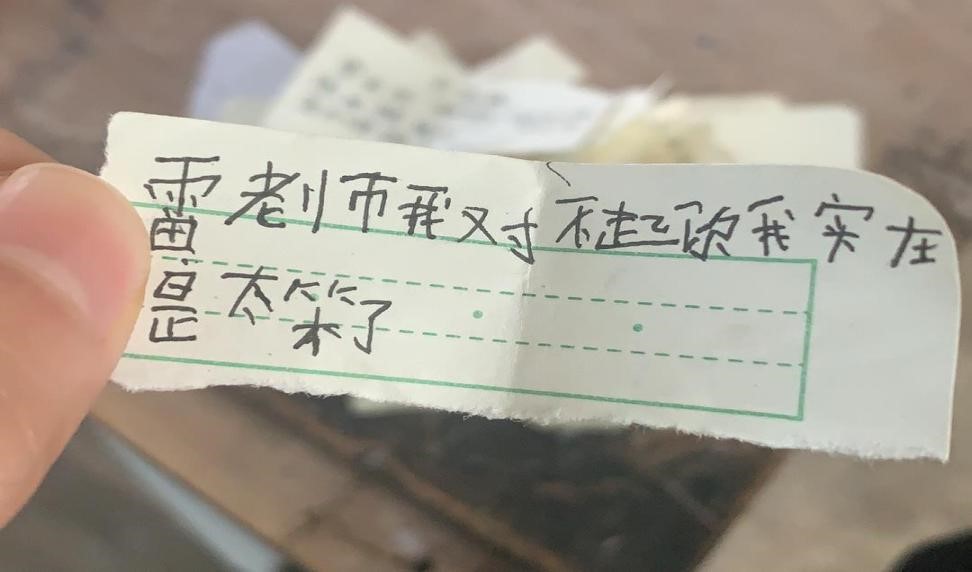 雷老师我对不起你我实在
是太笨了